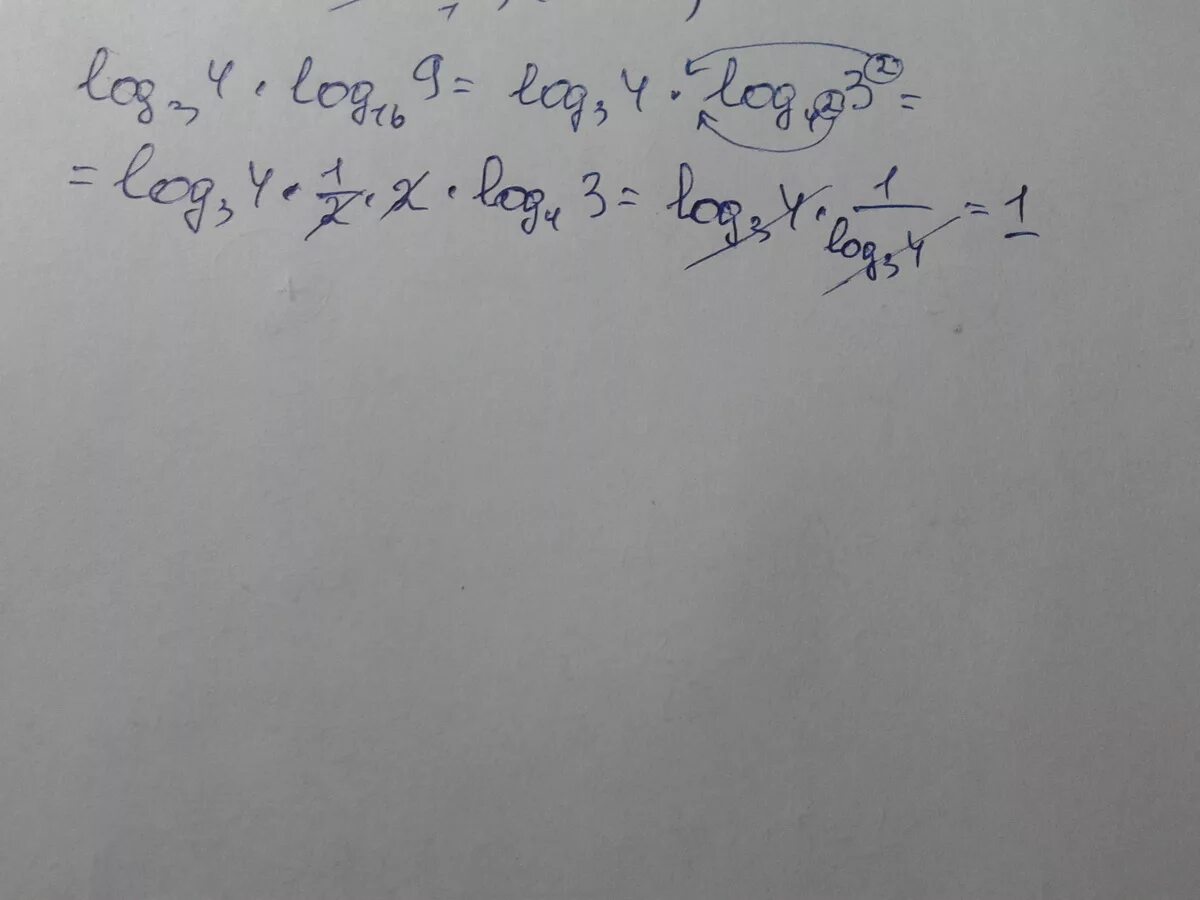 log₃4 · log₁₆9 = log₃4 · log₄²3² =
= log₃4 · 1/2 · 2 · log₄3 = log₃4 · 1/log₃4 = 1